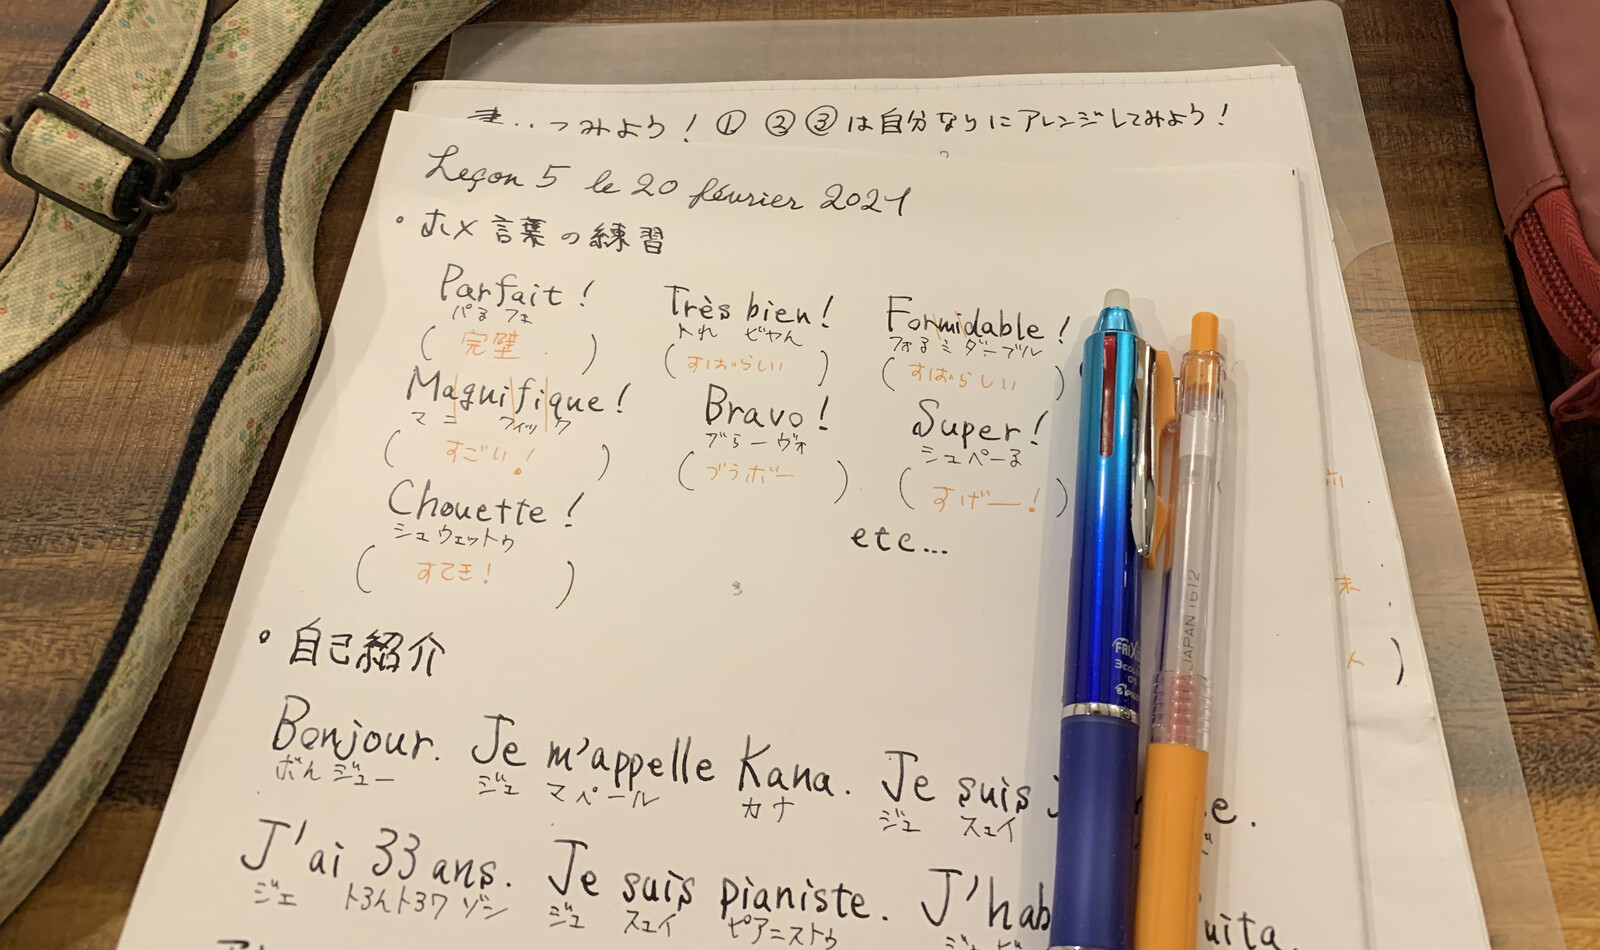 つみよう！①②③は自分なりにアレンジしてみよう！
Leçon 5 le 20 février 2021
・ホメ言葉の練習
Parfait! Très bien! Formidable!
パるフェ トれ ビヤん フォるミダーブル
(完璧.) (すばらしい) (すばらしい)
Magnifique! Bravo! Super!
マニフィック ブらーヴォ シュペーる
(すごい!) (ブラボー) (すげー!)
Chouette! etc...
シュウェットゥ
(すてき!)
・自己紹介
Bonjour. Je m'appelle Kana. Je suis
ボんジュー ジュ マペール カナ ジュ スュイ
J'ai 33 ans. Je suis pianiste. J'hab uita.
ジェ トろんトろワ ゾン ジュ スュイ ピアニストゥ
FRIX
3COL
05
JAPAN 1512